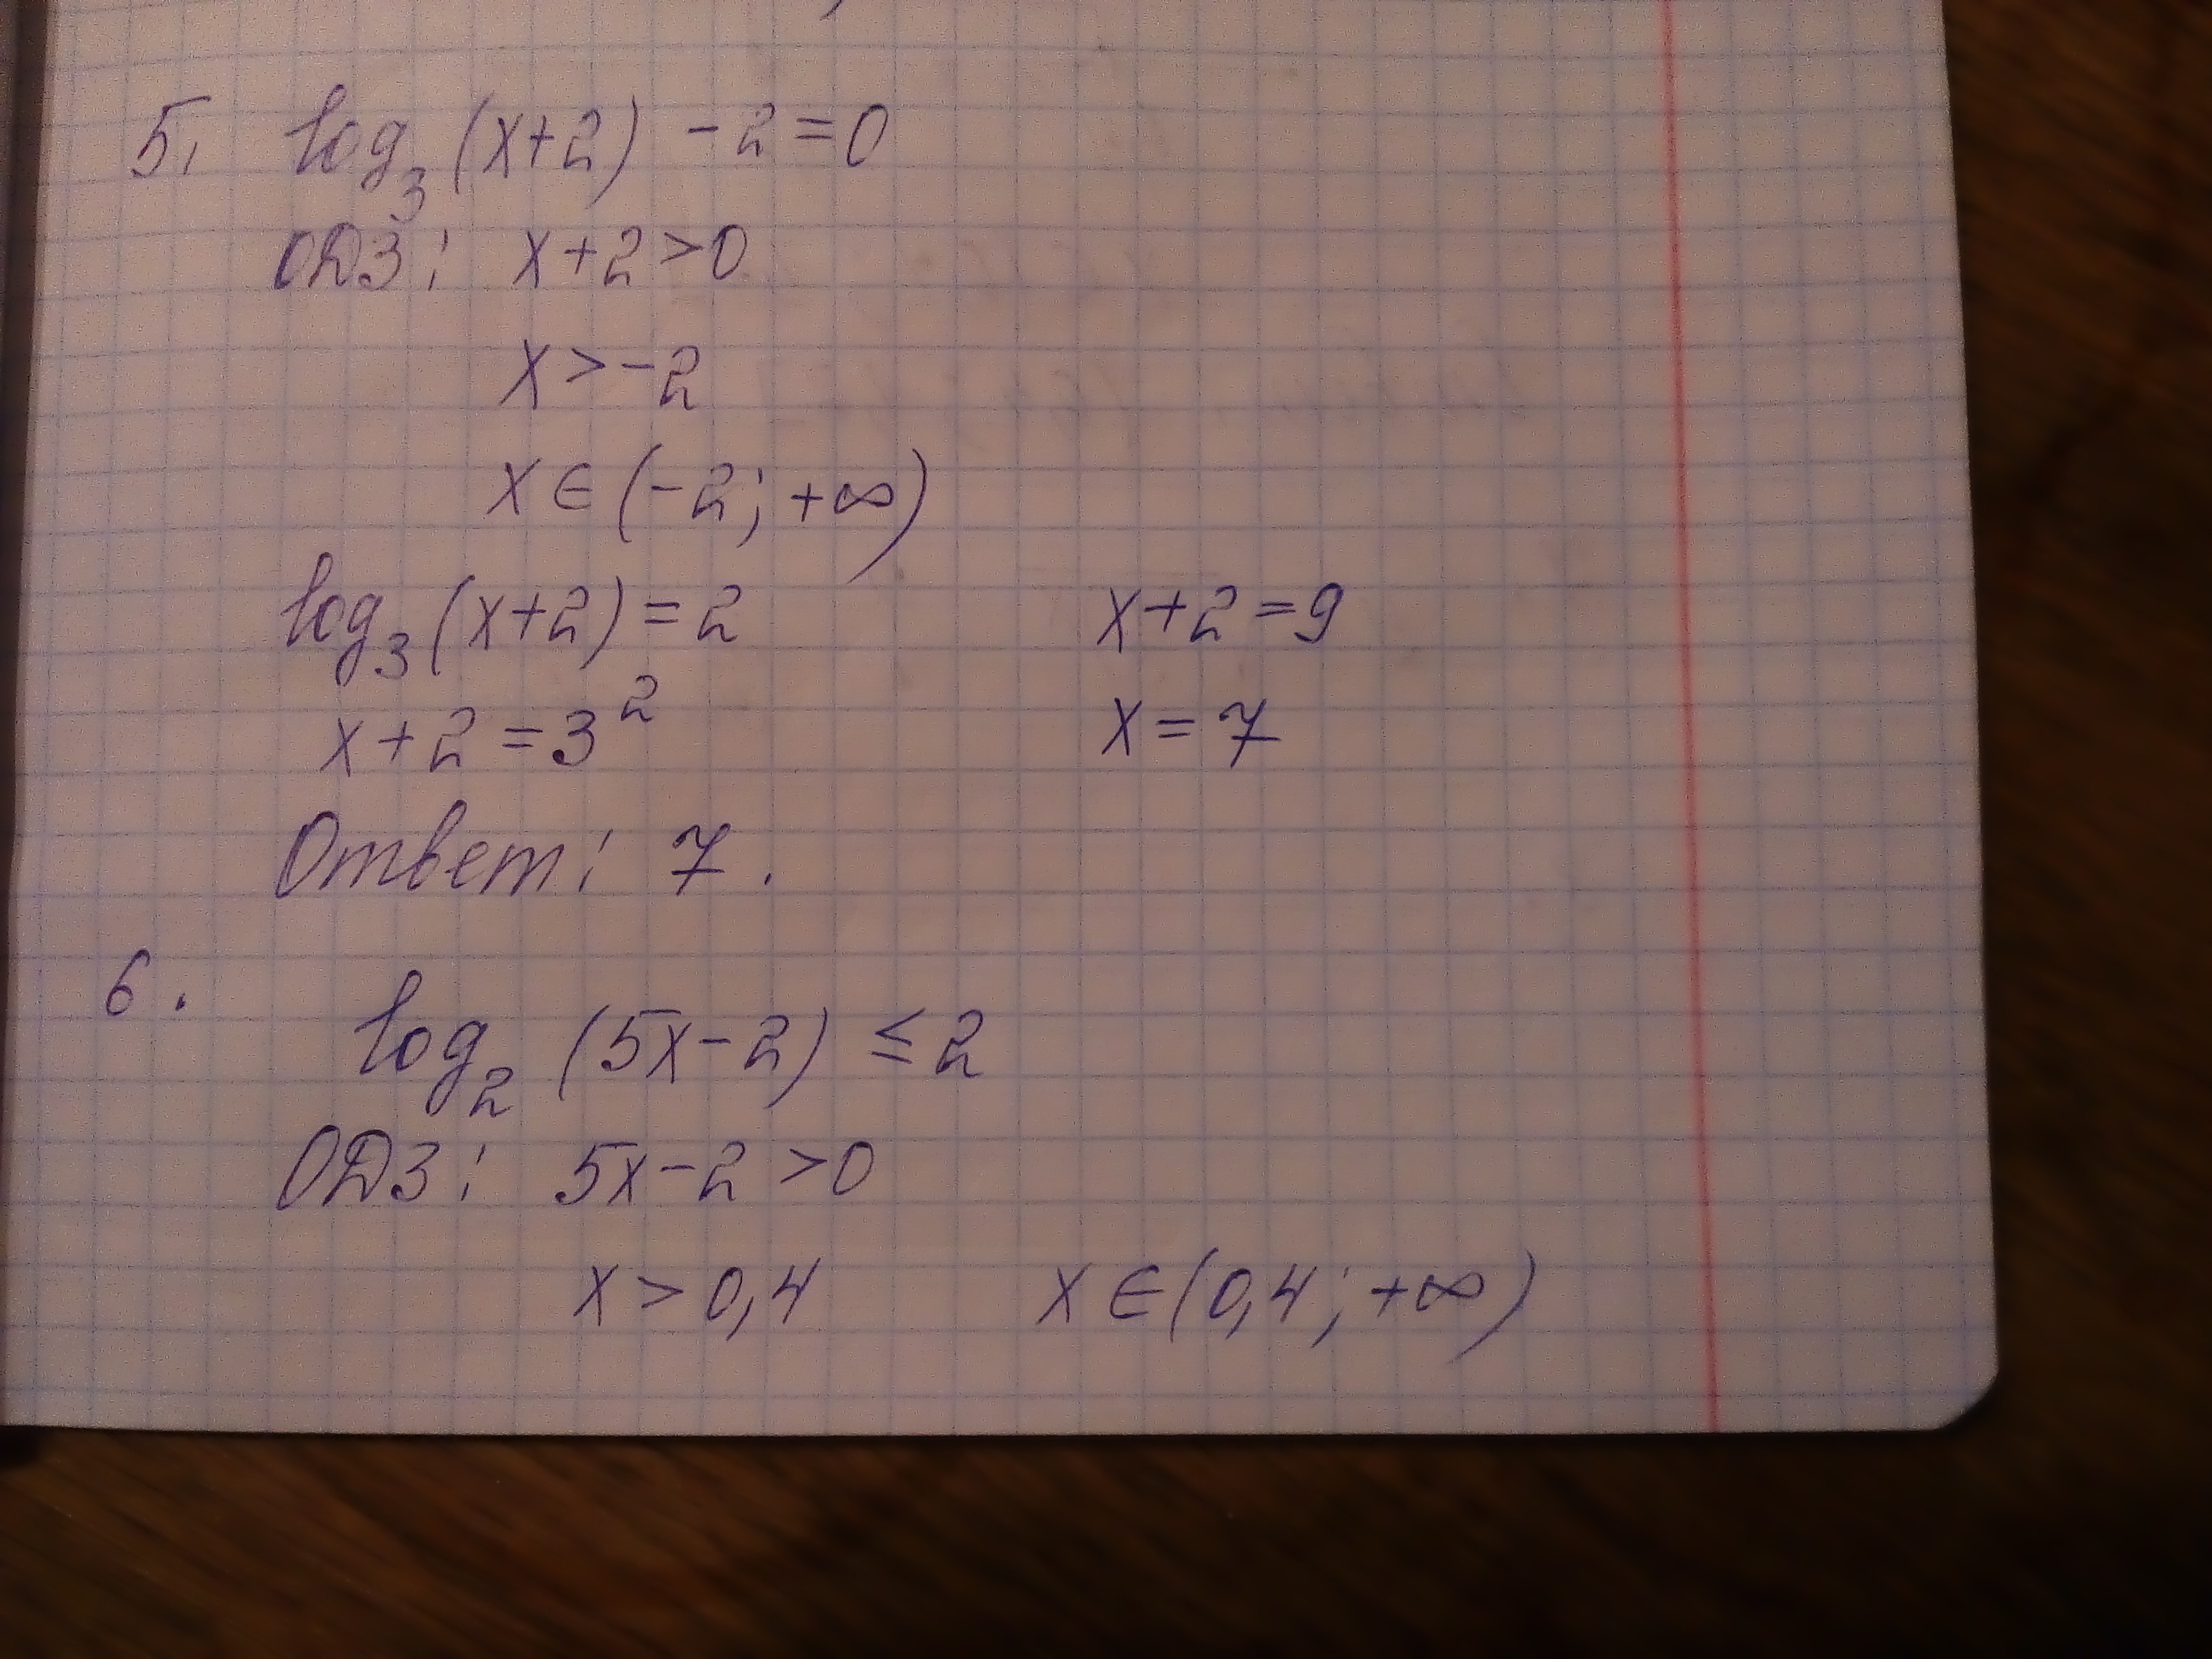 5. log₃(x+2) -2=0
ОДЗ: x+2>0
x>-2
x∈(-2; +∞)
log₃(x+2)=2
x+2=3²
x+2=9
x=7
Ответ: 7.
6.
log₂(5x-2)≤2
ОДЗ: 5x-2>0
x>0,4 x∈(0,4; +∞)